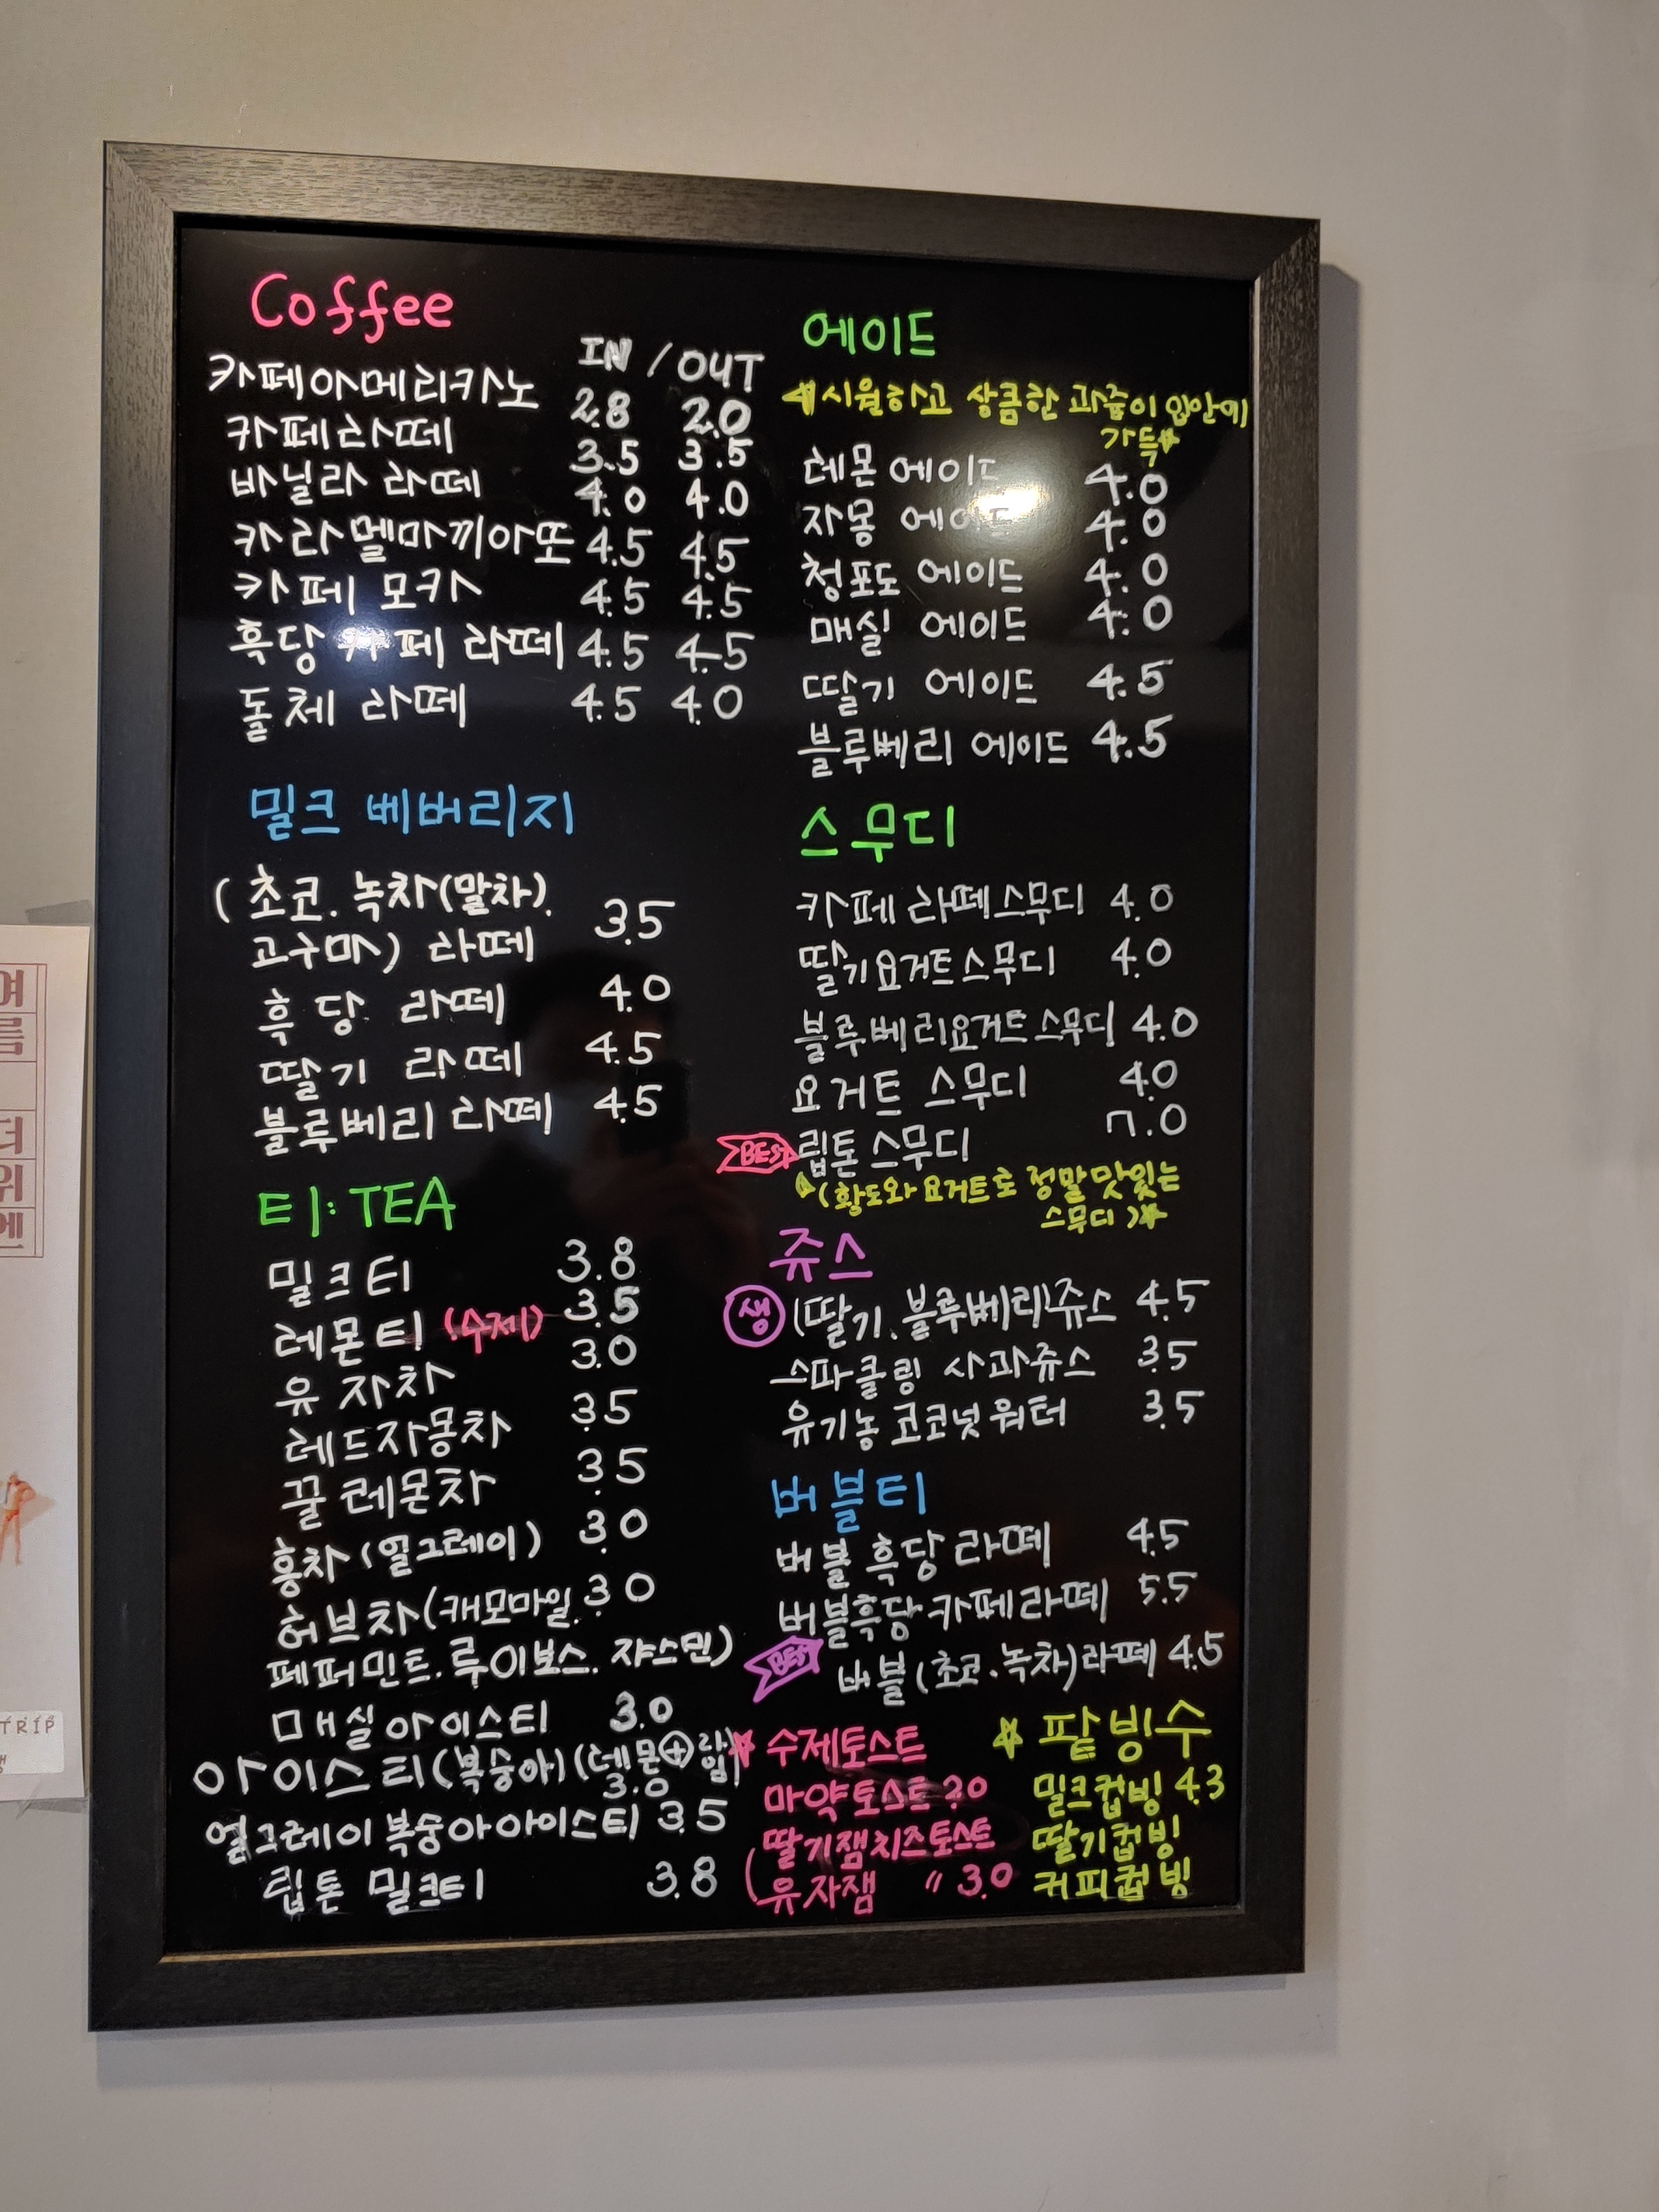 Coffee
IN / OUT
카페아메리카노 2.8 2.0
카페라떼 3.5 3.5
바닐라 라떼 4.0 4.0
카라멜마끼아또 4.5 4.5
카페 모카 4.5 4.5
흑당 카페 라떼 4.5 4.5
돌체 라떼 4.5 4.0
밀크 베버리지
(초코. 녹차(말차).
고구마) 라떼 3.5
흑당 라떼 4.0
딸기 라떼 4.5
블루베리 라떼 4.5
티: TEA
밀크티 3.8
레몬티 (수제) 3.5
유자차 3.0
레드자몽차 3.5
꿀레몬차 3.5
홍차(얼그레이) 3.0
허브차(캐모마일. 3.0
페퍼민트. 루이보스. 쟈스민)
매실아이스티 3.0
아이스티(복숭아)(레몬+라임)
3.0
얼그레이 복숭아아이스티 3.5
립톤 밀크티 3.8
에이드
시원하고 상큼한 과즙이 입안에
가득
레몬 에이드 4.0
자몽 에이드 4.0
청포도 에이드 4.0
매실 에이드 4.0
딸기 에이드 4.5
블루베리 에이드 4.5
스무디
카페 라떼스무디 4.0
딸기요거트스무디 4.0
블루베리요거트스무디 4.0
요거트 스무디 4.0
BEST 립톤 스무디 7.0
(황도와 요거트로 정말 맛있는
스무디)
쥬스
생 (딸기. 블루베리)쥬스 4.5
스파클링 사과쥬스 3.5
유기농 코코넛워터 3.5
버블티
버블 흑당 라떼 4.5
버블흑당카페라떼 5.5
BEST 버블(초코.녹차)라떼 4.5
수제토스트
마약토스트 2.0
딸기잼치즈토스트
유자잼 〃 3.0
팥빙수
밀크컵빙 4.3
딸기컵빙
커피컵빙
여
름
더
위
엔
TRIP